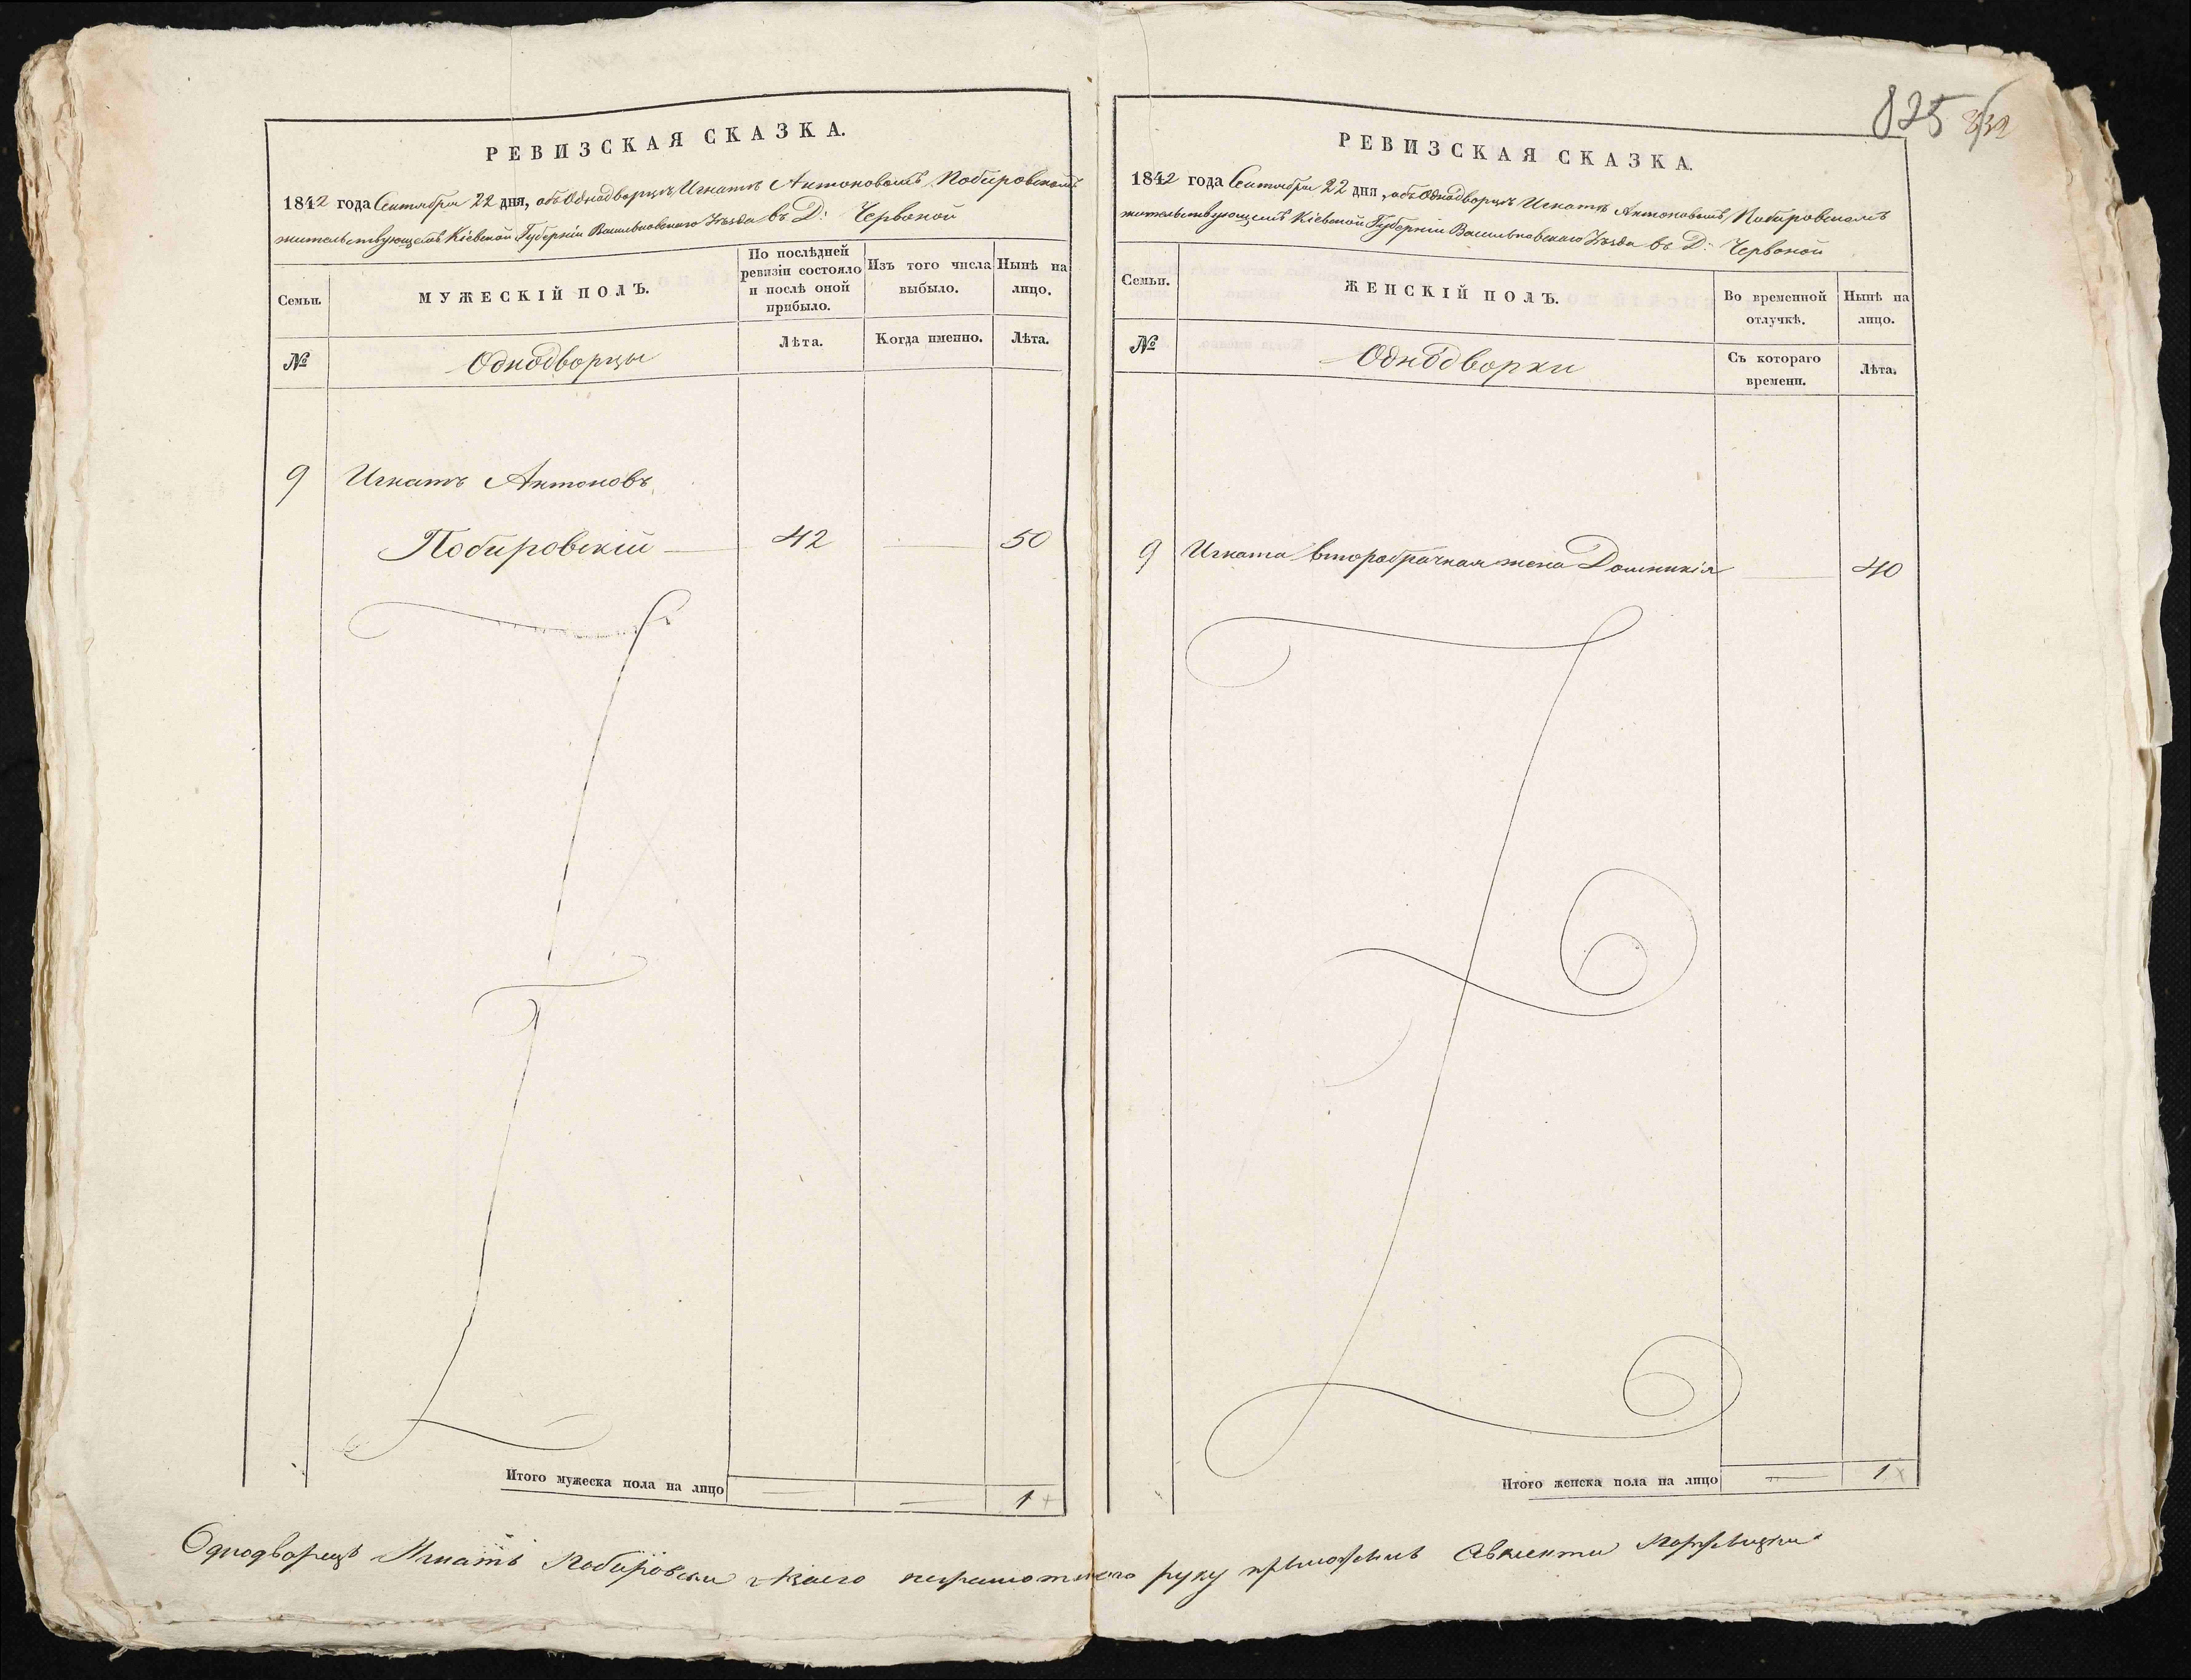 825 832
РЕВИЗСКАЯ СКАЗКА.
1842 года Сентября 22 дня, объ Однодворцѣ Игнатѣ Антоновомъ Побировскомъ
жительствующемъ Кіевской Губерніи Васильковскаго Уѣзда въ Д: Червоной
Семьи.
МУЖЕСКІЙ ПОЛЪ.
По послѣдней
ревизіи состояло
и послѣ оной
прибыло.
Изъ того числа
выбыло.
Нынѣ на
лицо.
№
Однодворцы
Лѣта.
Когда именно.
Лѣта.
9 Игнатъ Антоновъ
Побировскій 42 50
Итого мужеска пола на лицо 1
РЕВИЗСКАЯ СКАЗКА.
1842 года Сентября 22 дня, объ Однодворцѣ Игнатѣ Антоновомъ Побировскомъ
жительствующемъ Кіевской Губерніи Васильковскаго Уѣзда въ Д: Червоной
Семьи.
ЖЕНСКІЙ ПОЛЪ.
Во временной
отлучкѣ.
Нынѣ на
лицо.
№
Однодворки
Съ котораго
времени.
Лѣта.
9 Игната вторабрачная жена Домникія 40
Итого женска пола на лицо 1
Однодворецъ Игнатъ Побировски неграмотнаго руку приложилъ